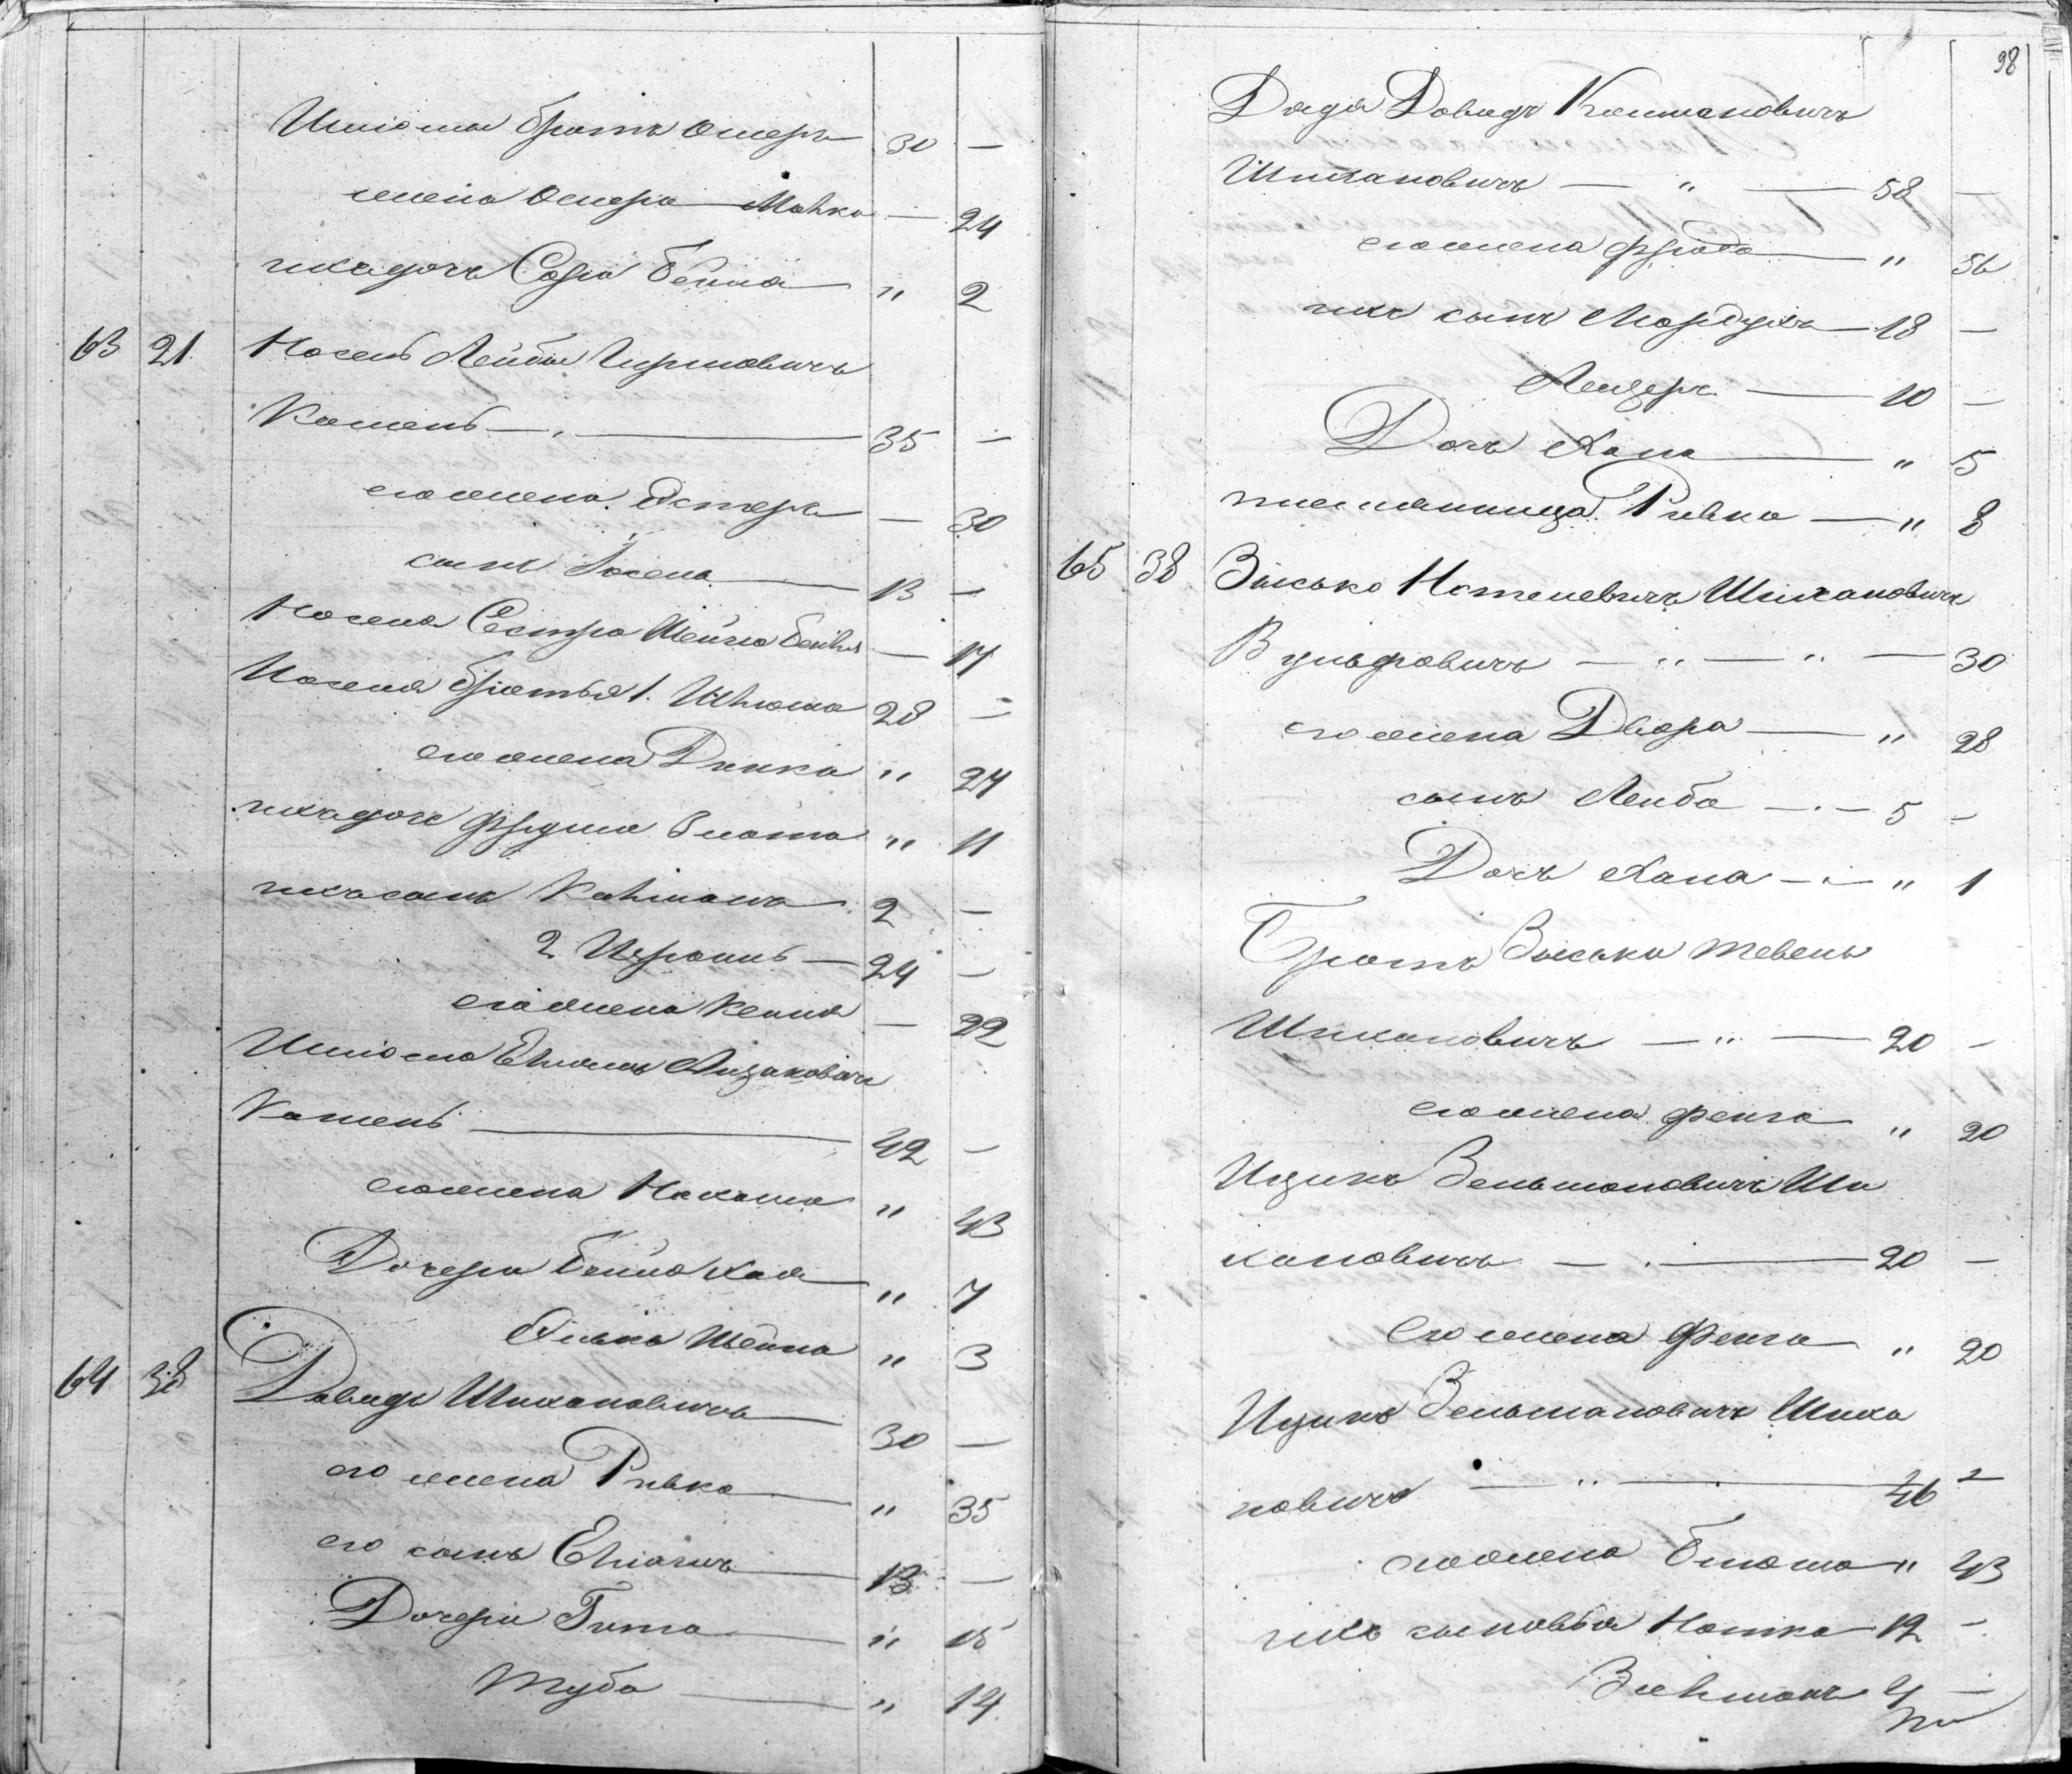 Шліома братъ Ошеръ 30 —
жена Ошера Малка — 24
ихъ дочь Сора Бейня " 2
63 21 Носень Лейба Гиршовичъ
Камень — 35 —
его жена Эстеръ — 30
сынъ Іосель 13 —
Носеля Сестра Шейна Бейля — 17
Носеля братья 1. Шлюма 28 —
его жена Динка " 24
ихъ дочь Фрудша Злота " 11
ихъ сынъ Калмана 2 —
2 Исроиль — 24 —
его жена Кейля — 22
Шліома Ельяшъ Айзаковичъ
Камень 42 —
его жена Нахама " 43
Дочери Бейла Хая " 7
Элька Шейна " 3
64 38 Давидъ Шихановичъ 30 —
его жена Ривка " 35
его сынъ Ельяшъ 13 —
Дочери Гита " 15
Туба " 14
98
Дядя Довидъ Калмановичъ
Шихановичъ — " — 58 —
его жена Фрада " 56
ихъ сынъ Мордухъ 18 —
Лейзеръ 10 —
Дочь Хана " 5
племянница Ривка — " 8
65 38 Зысько Нотелевичъ Шихановичъ
Вульфовичъ — " — " — 30
его жена Двора " 28
сынъ Лейба — 5 —
Дочь Хана — " 1
Братъ Зыська Тевель
Шихановичъ — " — 20 —
его жена Фейга " 20
Ицикъ Зельмановичъ Ши
хановичъ — 20 —
Его жена Фейга " 20
Ицикъ Зельмановичъ Шиха
новичъ — " — 46 —
его жена Блюма " 43
ихъ сыновья Нотка 12 —
Залманъ 4 —